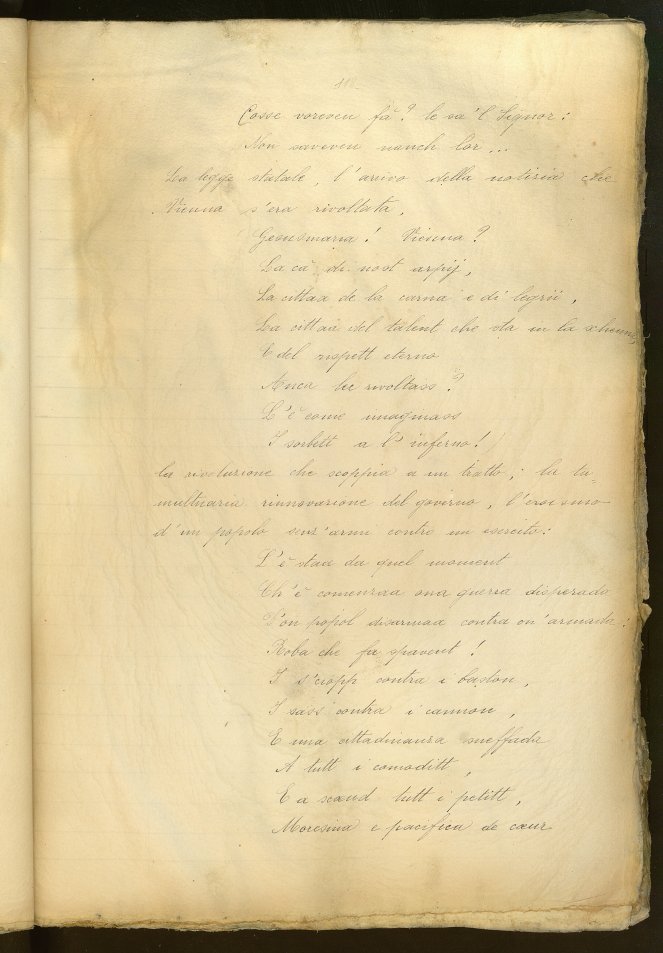 Cosse voreven fà? le sa 'l Signor:
Non saveven nanch lor...
La legge statale, l'arrivo della notizia che
Vienna s'era rivoltata,
Gesusmaria! Vienna?
La cà di nost arpij,
La cittaa de la carna e di legrii,
La cittaa del talent che sta in la
E del rispett eterno
Anca lee rivoltass?
L'è come imaginass
I sorbett a l'inferno!
la rivoluzione che scoppia a un tratto; la tu-
multuaria rinnovazione del governo, l'eroismo
d'un popolo senz'armi contro un esercito:
L'è staa da quel moment
Ch'è comenzaa ona guerra disperada
D'on popol disarmaa contra on'armada:
Roba che fa spavent!
I s'ciopp contra i baston,
I sass contra i cannon,
E una cittadinanza
A tutt i comoditt,
E a scœud tutt i petitt,
Moresina e pacifica de cœur